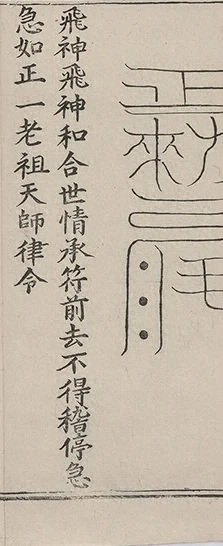 飛神飛神和合世情承符前去不得稽停急
急如正一老祖天師律令